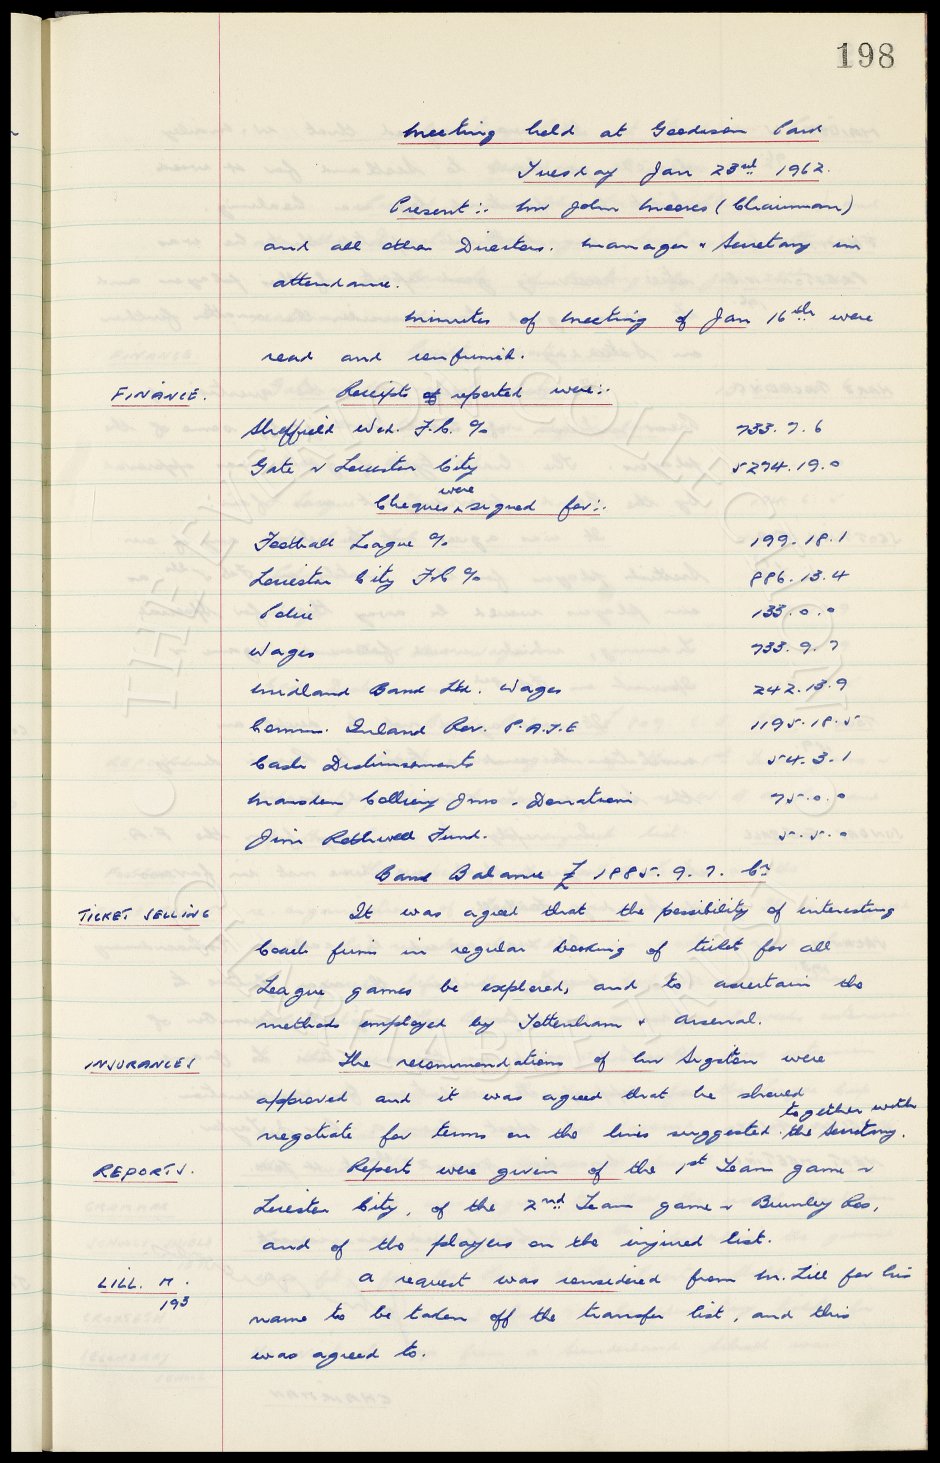 198
Meeting held at Goodison Park
Tuesday Jan 23rd 1962.
Present:. Mr John Moores (Chairman)
and all other Directors. Manager & Secretary in
attendance.
Minutes of Meeting of Jan 16th were
read and confirmed.
FINANCE. Receipts reported were:.
Sheffield Wed. F.C. % 733. 7. 6
Gate v Leicester City 5274. 19. 0
Cheques were signed for:.
Football League % 199. 18. 1
Leicester City F.C % 886. 13. 4
Police 133. 0. 0
Wages 733. 9. 7
Midland Bank Ltd. Wages 242. 13. 9
Comm. Inland Rev. P.A.Y.E 1195. 18. 5
Cash Disbursements 54. 3. 1
Marsden Colliery Jnrs. Donation 75. 0. 0
Jim Rothwell Fund. 5. 5. 0
Bank Balance £ 1885. 9. 7. Cr
TICKET SELLING It was agreed that the possibility of interesting
Coach firms in regular booking of ticket for all
League games be explored, and to ascertain the
methods employed by Tottenham & Arsenal.
INSURANCES The recommendations of Mr Sugston were
approved and it was agreed that he should
negotiate for terms on the lines suggested together with the Secretary.
REPORTS. Reports were given of the 1st Team game v
Leicester City, of the 2nd Team game v Burnley Res,
and of the players on the injured list.
LILL. M. A request was considered from M. Lill for his
193 name to be taken off the transfer list, and this
was agreed to.